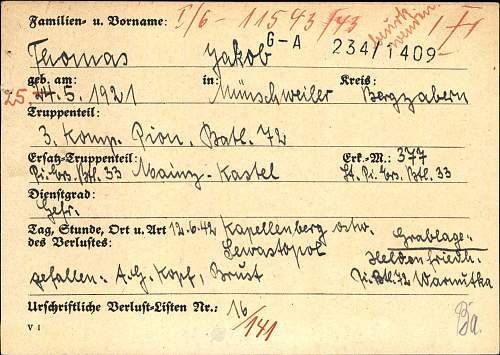 Familien- u. Vorname: I/6 - 11543/43 I
Thomas Jakob G-A 234/1409
geb. am: in: Kreis:
25. 14.5.1921 Münschweiler Bergzabern
Truppenteil:
3. Komp. Pion. Batl. 72
Ersatz-Truppenteil: Erk.-M.: 377
Pi. Ers. Btl. 33 Mainz-Kastel St. Pi. Ers. Btl. 33
Dienstgrad:
Gefr.
Tag, Stunde, Ort u. Art 12.6.42 Kapellenberg ostw. Grablage:
des Verlustes: Sewastopol Heldenfriedh.
gefallen: A.G. Kopf, Brust Pi. Btl. 72 Warnutka
Urschriftliche Verlust-Listen Nr.: 16/141
V 1 Ba.